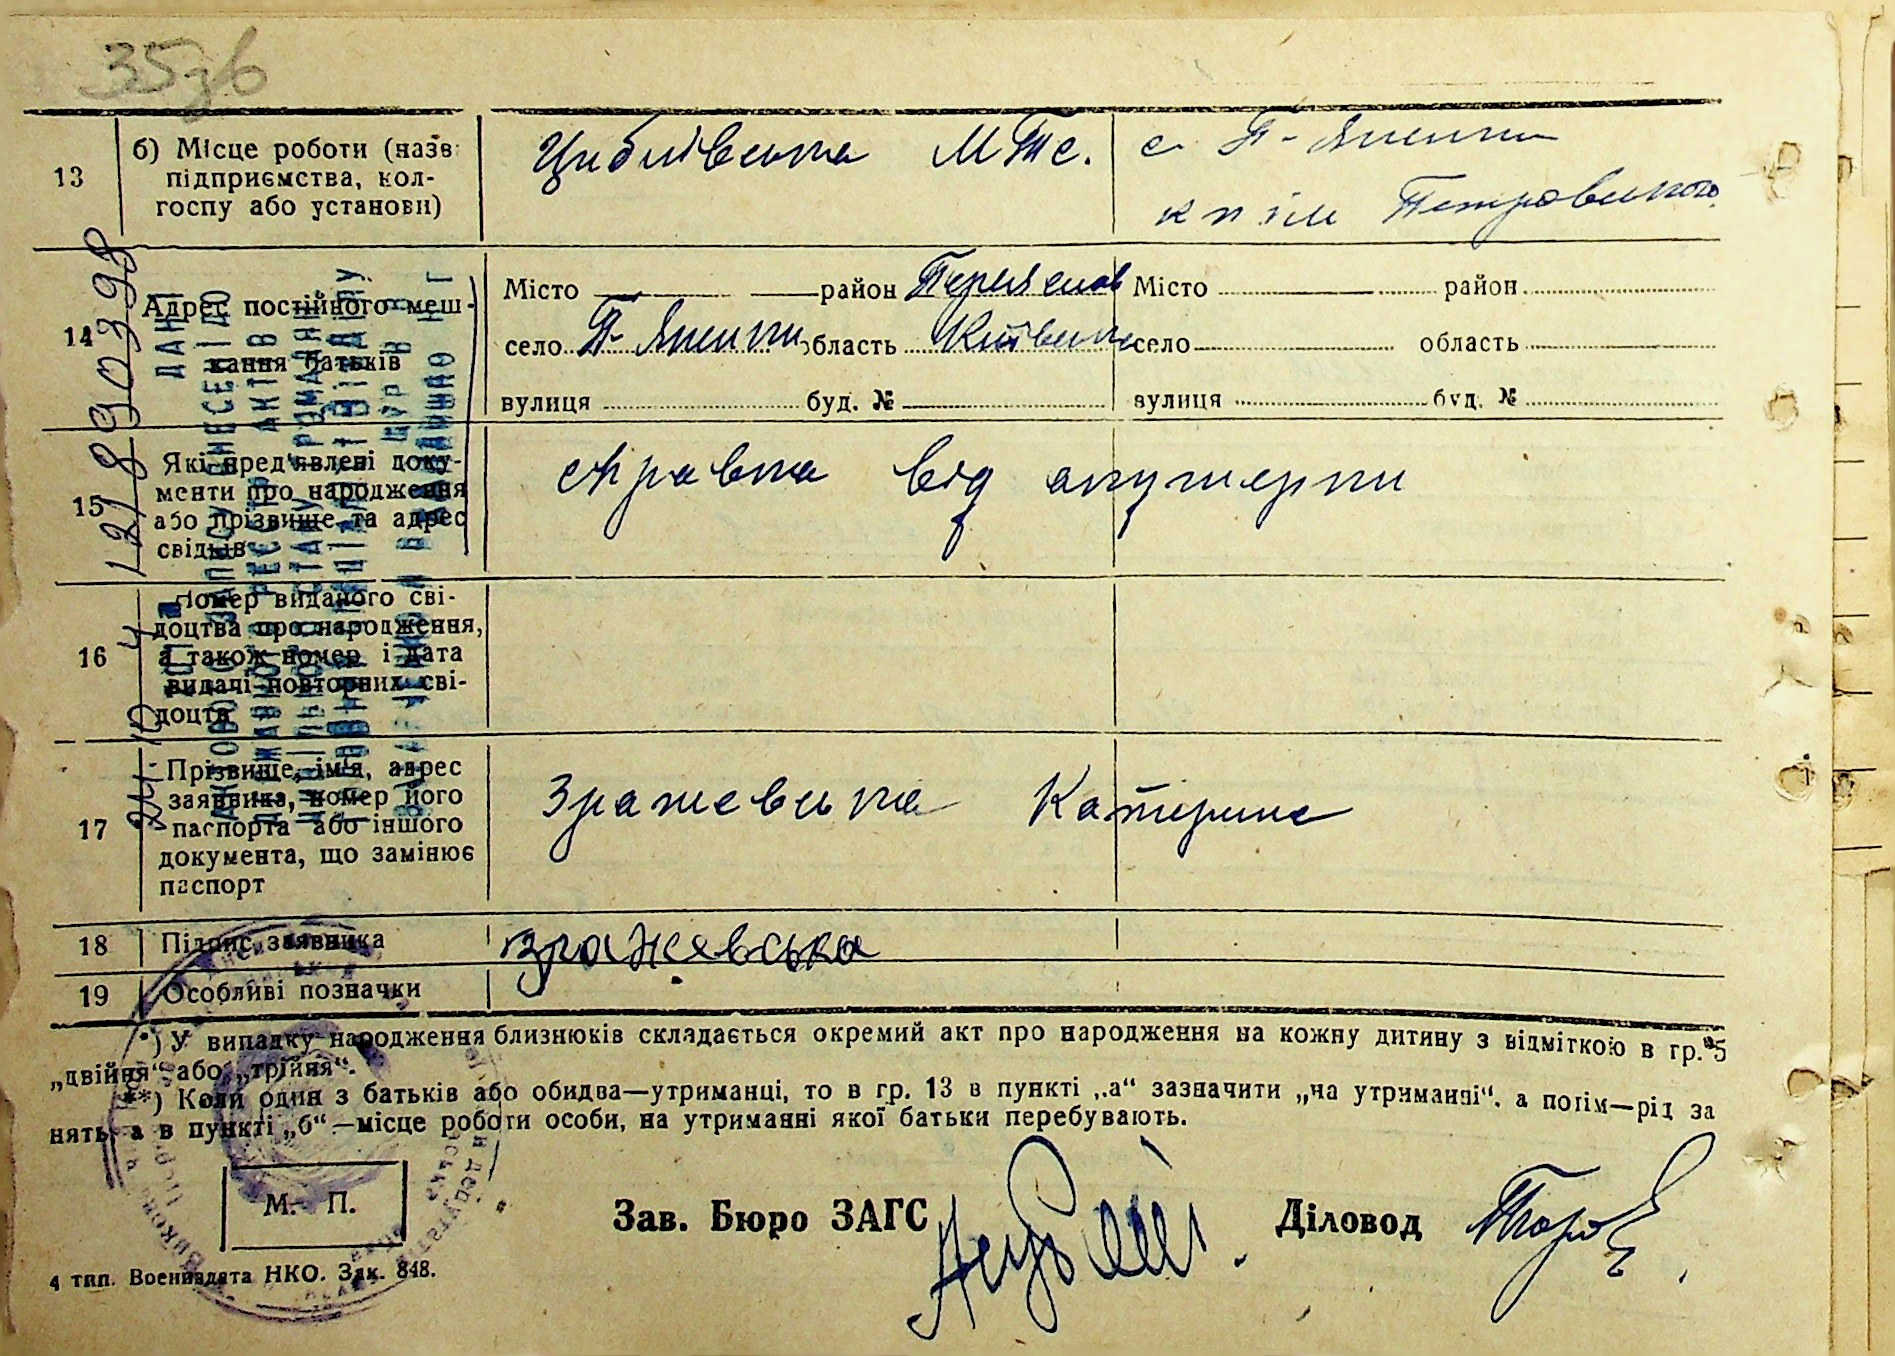 35зв
13
б) Місце роботи (назв
підприємства, кол-
госпу або установи)
Циблівська МТС.
с. П-
к п ім Петровського
14
Адрес постійного меш-
кання батьків
Місто район Переяслав
село П- область Київська
вулиця буд. №
Місто район
село область
вулиця буд. №
15
Які пред'явлені доку-
менти про народження
або прізвище та адрес
свідків
справка від акушерки
16
Номер виданого сві-
доцтва про народження,
а також номер і дата
видачі повторних сві-
доцтв
17
Прізвище, ім'я, адрес
заявника, номер його
паспорта або іншого
документа, що замінює
паспорт
Зражевська Катерина
18
Підпис заявника
Зражевська
19
Особливі позначки
*) У випадку народження близнюків складається окремий акт про народження на кожну дитину з відміткою в гр. 5
„двійня“ або „трійня“.
**) Коли один з батьків або обидва—утриманці, то в гр. 13 в пункті „а“ зазначити „на утриманні“, а потім—рід за
нять, а в пункті „б“—місце роботи особи, на утриманні якої батьки перебувають.
М. П.
Зав. Бюро ЗАГС
Діловод
4 тип. Воениздата НКО. Зак. 848.